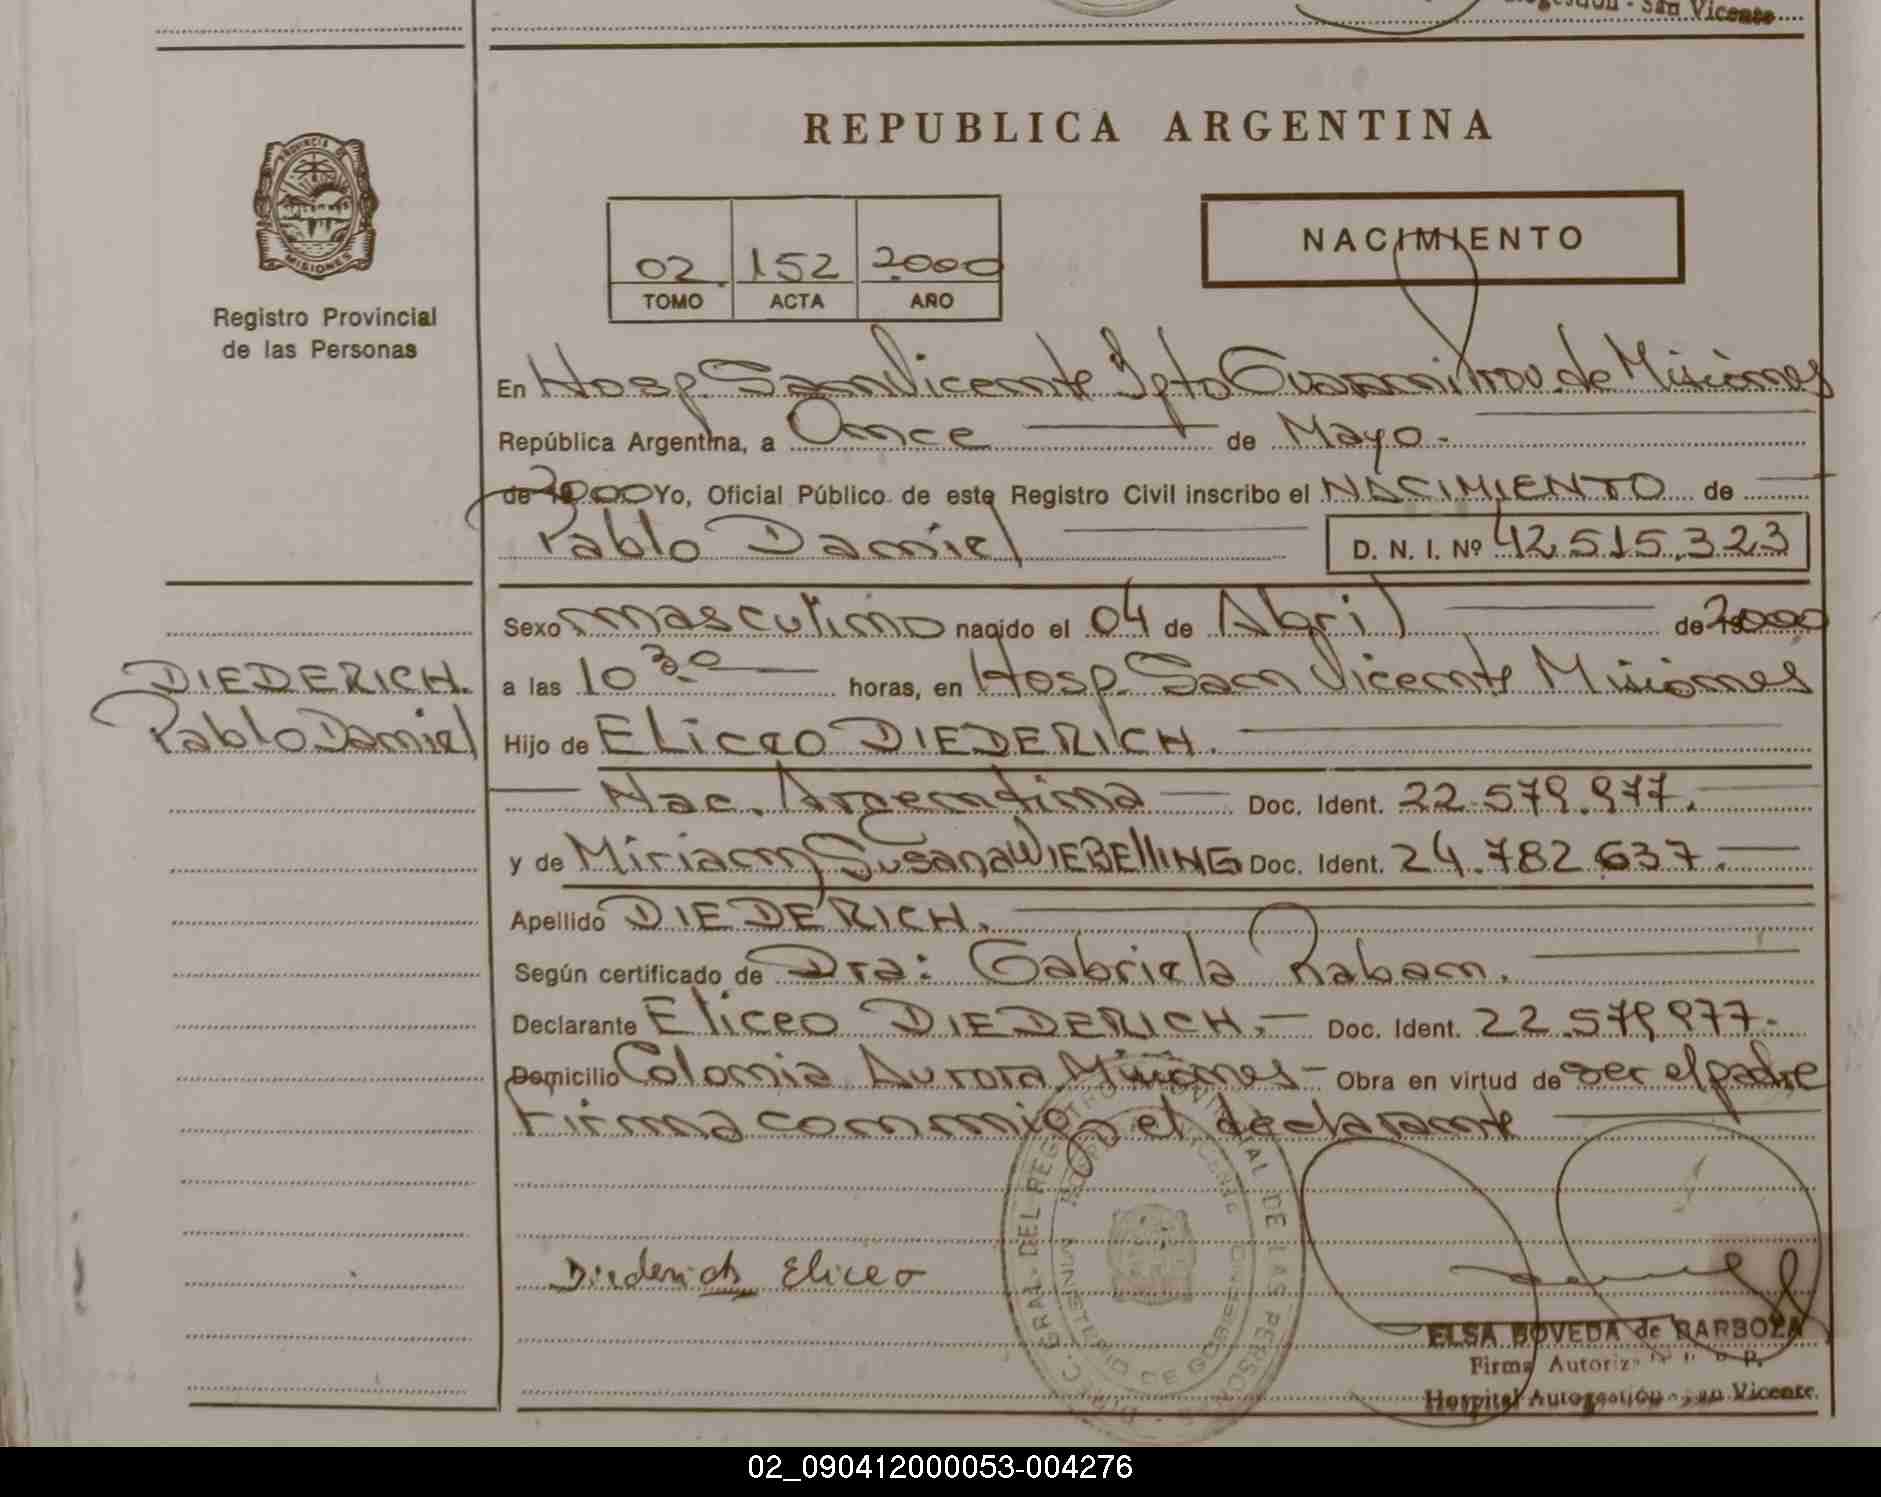 San Vicente
REPUBLICA ARGENTINA
PROVINCIA DE
MISIONES
Registro Provincial
de las Personas
02 152 2000
TOMO ACTA AÑO
NACIMIENTO
En Hosp. San Vicente Dpto Guarani Prov. de Misiones
República Argentina, a Once de Mayo.-
de 2000 Yo, Oficial Público de este Registro Civil inscribo el NACIMIENTO de
Pablo Daniel D. N. I. Nº 42.515.323
Sexo masculino nacido el 04 de Abril de 2000
a las 10 30 horas, en Hosp. San Vicente Misiones
DIEDERICH.
Pablo Daniel
Hijo de Eliceo DIEDERICH.
Nac. Argentina Doc. Ident. 22.579.977.
y de Miriam Susana WIEBELLING Doc. Ident. 24.782.637.
Apellido DIEDERICH.
Según certificado de Dra: Gabriela Raban.
Declarante Eliceo DIEDERICH.- Doc. Ident. 22.579.977.
Domicilio Colonia Aurora Misiones- Obra en virtud de ser el padre
Firma conmigo el declarante
Diederich Eliceo
DEL REGISTRO PROVINCIAL DE LAS PERSONAS
MINISTERIO DE GOBIERNO
ELSA BOVEDA de BARBOZA
Firma
Hospital Autogestión - San Vicente
02_090412000053-004276